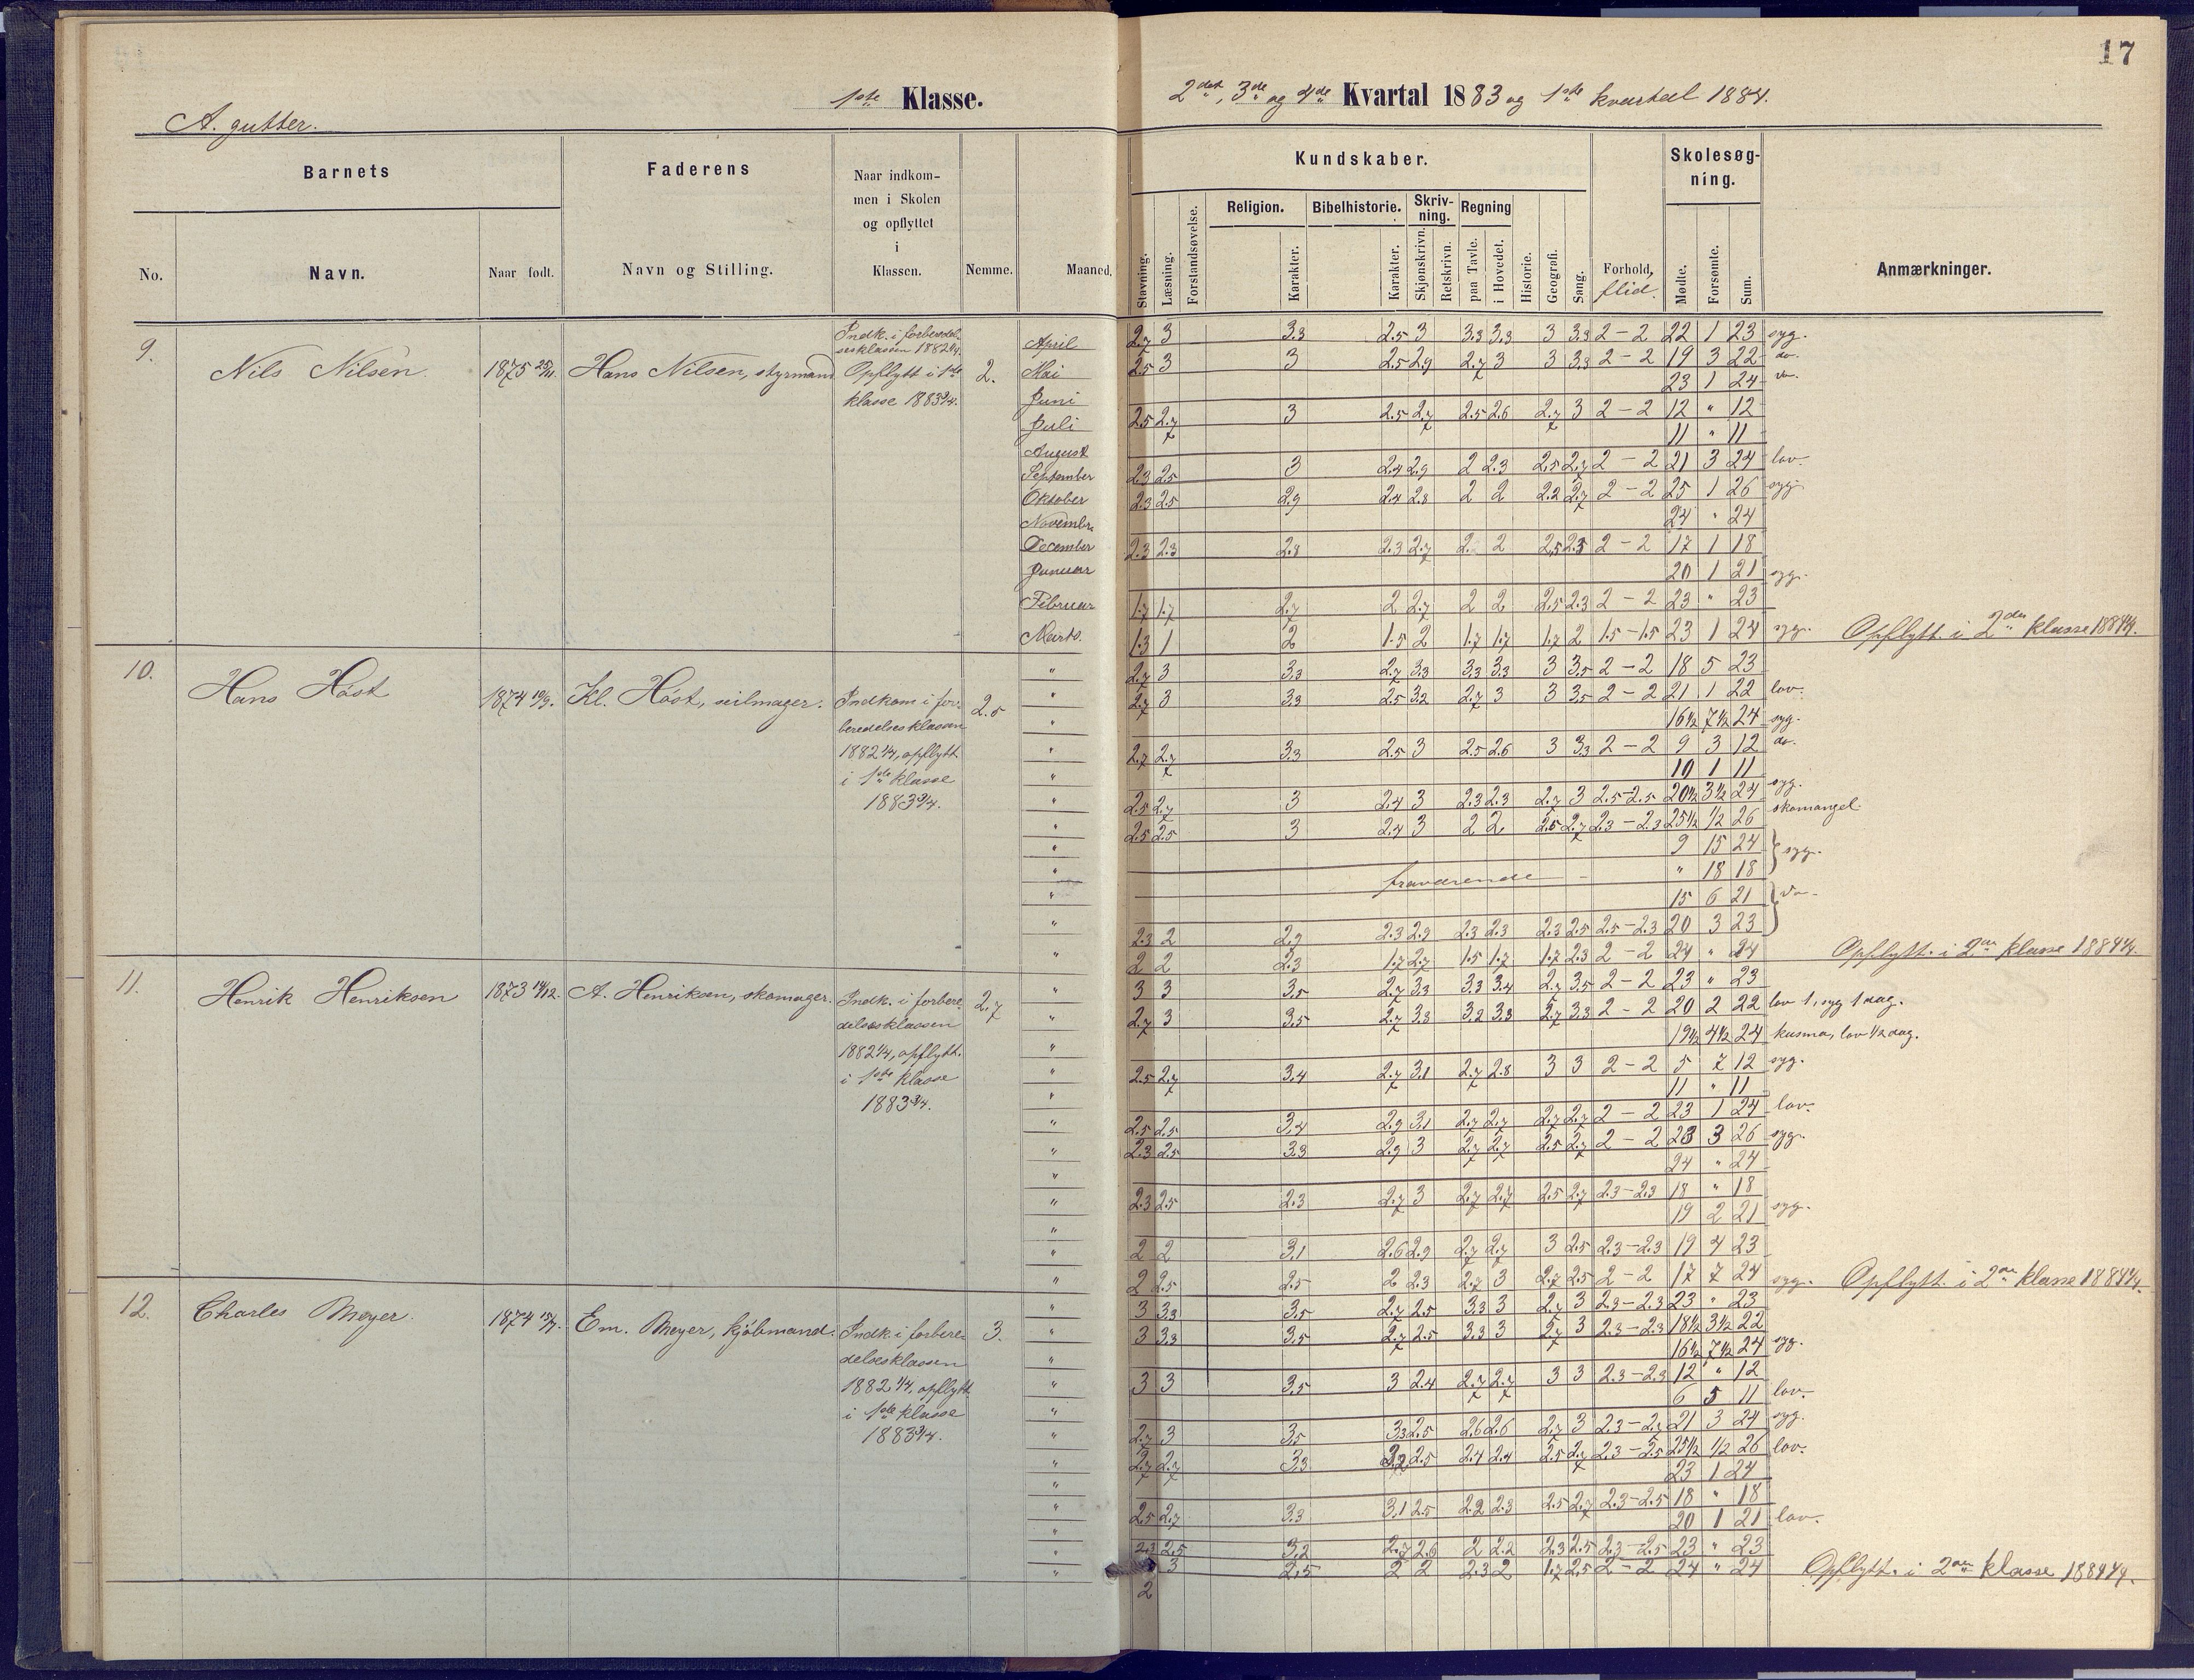 17
1ste Klasse.
2det, 3de og 4de Kvartal 1883 og 1ste kvartal 1884.
A. gutter.
Barnets
Faderens
Naar indkom-
men i Skolen
og opflyttet
i
Klassen.
Kundskaber.
Skolesøg-
ning.
Religion. Bibelhistorie. Skriv-
ning. Regning
No. Navn. Naar født. Navn og Stilling. Nemme. Maaned.
Stavning. Læsning. Forstandsøvelse. Karakter. Karakter. Skjønskrivn. Retskrivn. paa Tavle. i Hovedet. Historie. Geografi. Sang. Forhold, flid. Mødte. Forsømte. Sum. Anmærkninger.
9. Nils Nilsen. 1875 Hans Nilsen, styrmand 2.
Indk. i forberedel-
sesklassen 1882
Opflytt i 1ste
klasse 1883
April 2.7 3 3.3 2.5 3 3.3 3.3 3 3.3 2 – 2 22 1 23 syg.
Mai 2.5 3 3 2.5 2.9 2.7 3 3 3.3 2 – 2 19 3 22 do.
Juni 23 1 24 do.
Juli 2.5 2.7 3 2.5 2.7 2.5 2.6 2.7 3 2 – 2 12 " 12
August 11 " 11
September 2.3 2.5 3 2.4 2.9 2 2.3 2.5 2.7 2 – 2 21 3 24 lov.
Oktober 2.3 2.5 2.9 2.4 2.8 2 2 2.2 2.7 2 – 2 25 1 26 syg.
Novembr. 24 " 24
December 2.3 2.3 2.8 2.3 2.7 2. 2 2.5 2.5 2 – 2 17 1 18
Januar 20 1 21 syg.
Februar 1.7 1.7 2.7 2 2.7 2 2 2.5 2.3 2 – 2 23 " 23
Marts. 1.3 1 2 1.5 2 1.7 1.7 1.7 2 1.5 – 1.5 23 1 24 syg. Opflytt. i 2den klasse 1884
10. Hans Høst 1874 Kl. Høst, seilmager. 2.5
Indkom i for-
beredelsesklassen
1882 1/4, opflytt
i 1ste klasse
1883
" 2.7 3 3.3 2.7 3.3 3.3 3.3 3 3.5 2 – 2 18 5 23
" 2.7 3 3.3 2.5 3.2 2.7 3 3 3.5 2 – 2 21 1 22 lov.
" 16½ 7½ 24 syg.
" 2.7 2.7 3.3 2.5 3 2.5 2.6 3 3.3 2 – 2 9 3 12 do.
" 10 1 11
" 2.5 2.7 3 2.4 3 2.3 2.3 2.7 3 2.5 – 2.5 20½ 3½ 24 syg.
" 2.5 2.5 3 2.4 3 2 2 2.5 2.7 2.3 – 2.3 25½ ½ 26 skomangel
" 9 15 24 syg.
" fraværende " 18 18
" 15 6 21 do
" 2.3 2 2.9 2.3 2.9 2.3 2.3 2.3 2.5 2.5 – 2.3 20 3 23
" 2 2 2.3 1.7 2.7 1.5 1.7 1.7 2.3 2 – 2 24 " 24 Opflytt. i 2den klasse 1884
11. Henrik Henriksen 1873 14/12. A. Henriksen, skomager. 2.7
Indk. i forbere-
delsesklassen
1882 1/4, opflytt.
i 1ste klasse
1883
" 3 3 3.5 2.7 3.3 3.3 3.4 2.7 3.5 2 – 2 23 " 23
" 2.7 3 3.5 2.7 3.3 3.2 3.3 2.7 3.3 2 – 2 20 2 22 lov 1, syg 1 dag.
" 19½ 4½ 24 kusma, lov ½ dag.
" 2.5 2.7 3.4 2.7 3.1 2.7 2.8 3 3 2 – 2 5 7 12 syg.
" 11 " 11
" 2.5 2.5 3.4 2.9 3.1 2.7 2.7 2.7 2.7 2 – 2 23 1 24 lov.
" 2.3 2.5 3.3 2.9 3 2.7 2.7 2.5 2.7 2 – 2 23 3 26 syg.
" 24 " 24
" 2.3 2.5 2.3 2.7 3 2.7 2.7 2.5 2.7 2.3 – 2.3 18 " 18
" 19 2 21 syg.
" 2 2 3.1 2.6 2.9 2.7 2.7 3 2.5 2.3 – 2.3 19 4 23
" 2 2.5 2.5 2 2.3 2.7 3 2.7 2.5 2 – 2 17 7 24 syg. Opflytt. i 2den klasse 1884
12. Charles Meyer. 1874 Em. Meyer, kjøbmand. 3.
Indk. i forbere-
delsesklassen
1882 1/4, opflytt
i 1ste klasse
1883
" 3 3.3 3.5 2.7 2.5 3.3 3 2.7 3 2.3 – 2.3 23 " 23
" 3 3.3 3.5 2.7 2.5 3.3 3 2.7 3 2.3 – 2.3 18½ 3½ 22
" 16½ 7½ 24 syg.
" 3 3 3.5 3 2.4 2.7 2.7 3 3 2.3 – 2.3 12 " 12
" 6 5 11 lov.
" 2.7 3 3.5 3.3 2.5 2.6 2.6 2.7 3 2.3 – 2.7 21 3 24 syg.
" 2.7 2.7 3.3 3.2 2.5 2.4 2.4 2.5 2.7 2.3 – 2.5 25½ ½ 26 lov.
" 23 1 24
" 2.5 2.7 3.3 3.1 2.5 2.2 2.3 2.5 2.7 2.3 – 2.5 18 " 18
" 20 1 21 lov.
" 2.3 2.5 3.2 2.7 2.6 2 2.2 2.3 2.5 2.3 – 2.5 23 " 23
" 2 3 2.5 2 2 2.3 2 1.7 2.5 2 – 2 24 " 24 Opflytt. i 2den klasse 1884